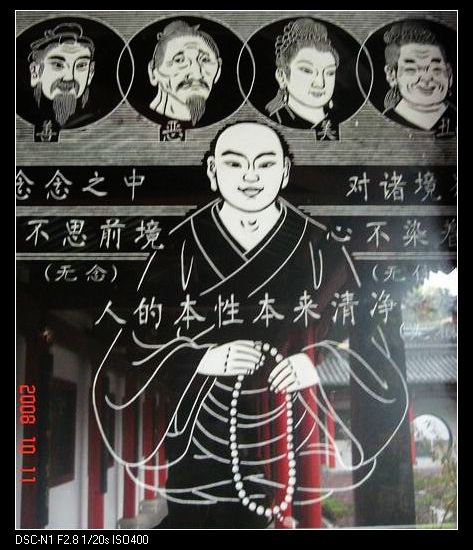 善 恶 美 丑
念念之中 对诸境
不思前境 心不染着
(无念) (无住
人的本性本来清净
2008 10 11
DSC-N1 F2.8 1/20s ISO400